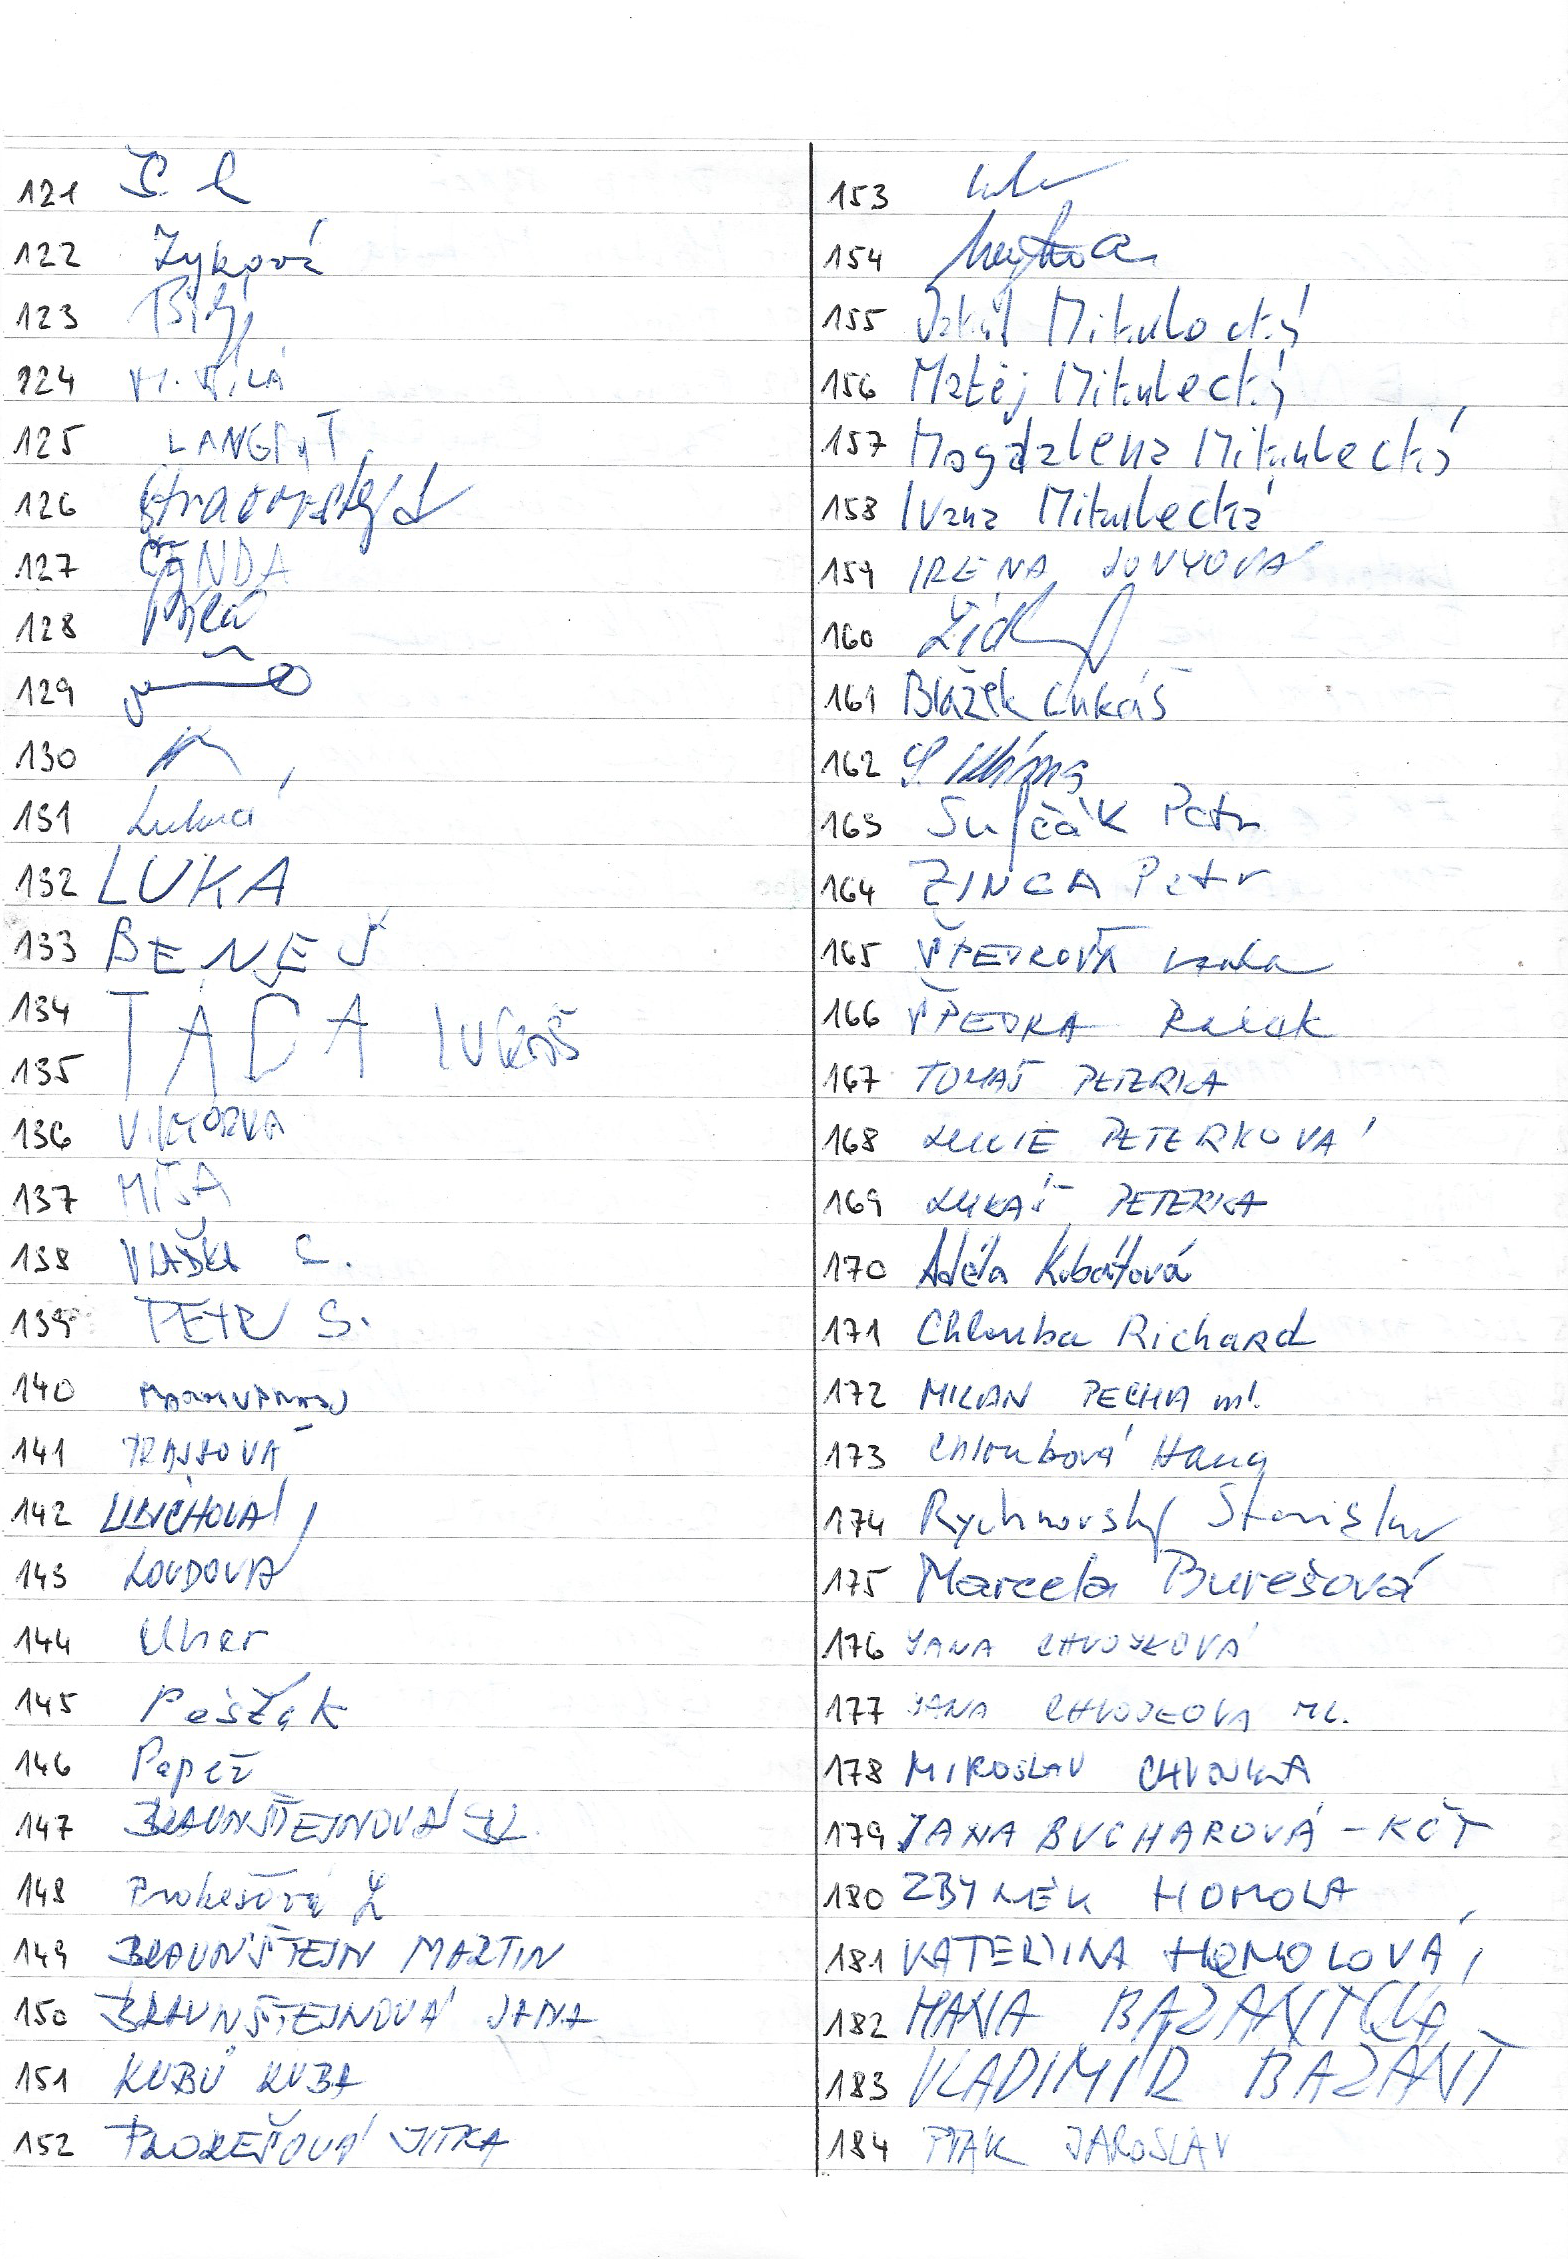 121
122 Zyková
123 Bílý
124 M. Bílá
125 LANGR
126
127 ČENDA
128 Bílá
129
130
131
132 LUKA
133 BENEŠ
134 TÁCA LUKÁŠ
135
136 VIKTORKA
137 MÍŠA
138 VLAĎKA S.
139 PETR S.
140
141
142 ULRICHOVÁ
143 LOUDOVÁ
144 Uher
145 Pešťák
146 Papež
147 BRAUNŠTEJNOVÁ
148 Prokešová
149 BRAUNŠTEJN MARTIN
150 BRAUNŠTEJNOVÁ JANA
151 KUBŮ KUBA
152 PROKEŠOVÁ JITKA
153
154
155 Jakub Mikulecký
156 Matěj Mikulecký
157 Magdalena Mikulecká
158 Ivana Mikulecká
159 IRENA
160
161 Blažek Lukáš
162 Klíma
163 Petr
164 ZINCA Petr
165 ŠPEDROVÁ
166 ŠPEDRA Radek
167 TOMÁŠ PETERKA
168 LUCIE PETERKOVÁ
169 LUKÁŠ PETERKA
170 Adéla Kubátová
171 Chlouba Richard
172 MILAN PECHA ml.
173 Chloubová Hana
174 Rychnovský Stanislav
175 Marcela Burešová
176 JANA CHVOJKOVÁ
177 JANA CHVOJKOVÁ ML.
178 MIROSLAV CHVOJKA
179 JANA BUCHAROVÁ - KČT
180 ZBYNĚK HOMOLA
181 KATEŘINA HOMOLOVÁ
182 HANA BAŽANTOVÁ
183 VLADIMÍR BAŽANT
184 PTÁK JAROSLAV